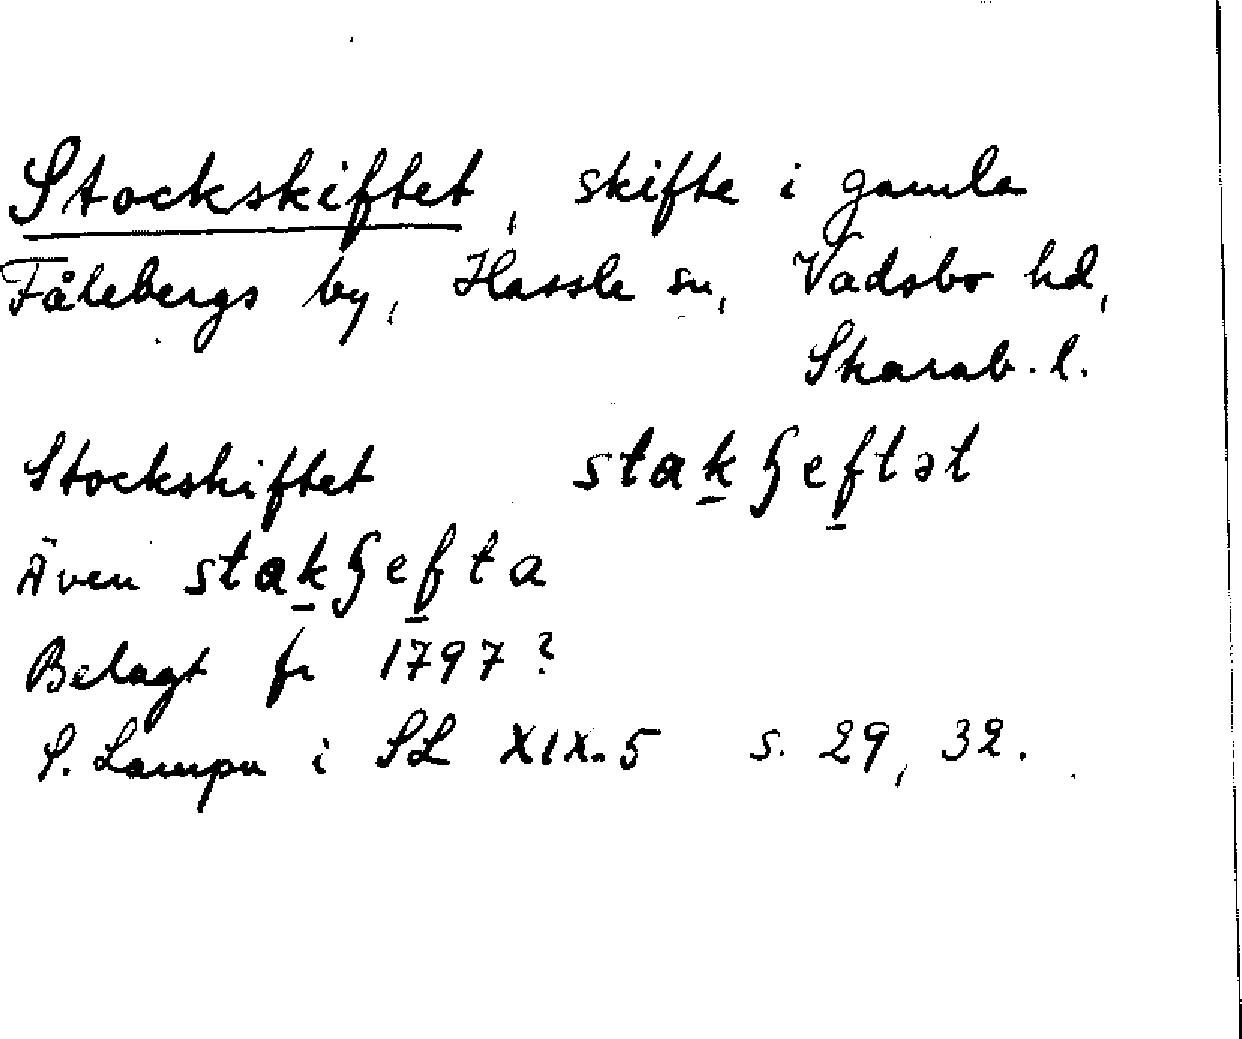 Stockskiftet, skifte i gamla
Fålebergs by, Hassle sn, Vadsbo hd,
Skarab. l.
Stockskiftet stak̲ʃef̲tət
Även stak̲ʃef̲ta
Belagt fr 1797?
S. Lampa i SL XIX.5 s. 29, 32.